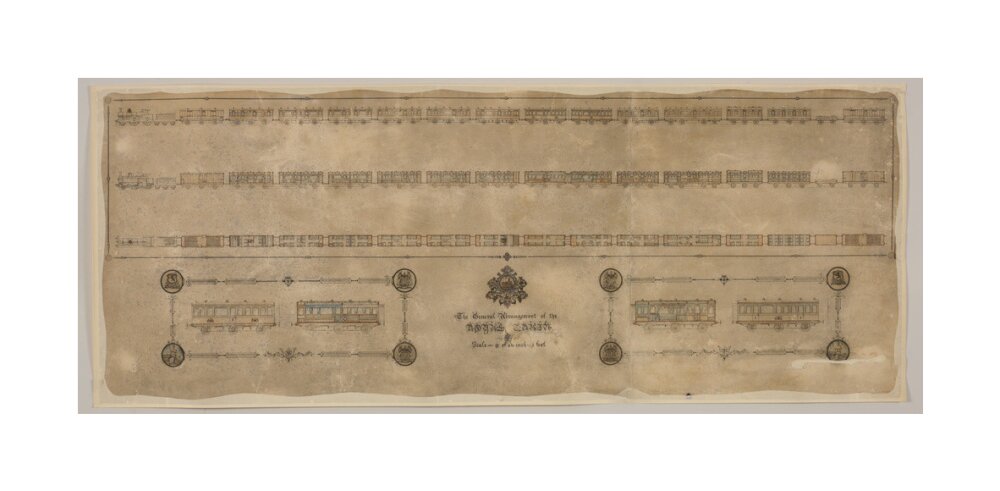 The General Arrangement of the
ROYAL TRAIN
Scale inch feet